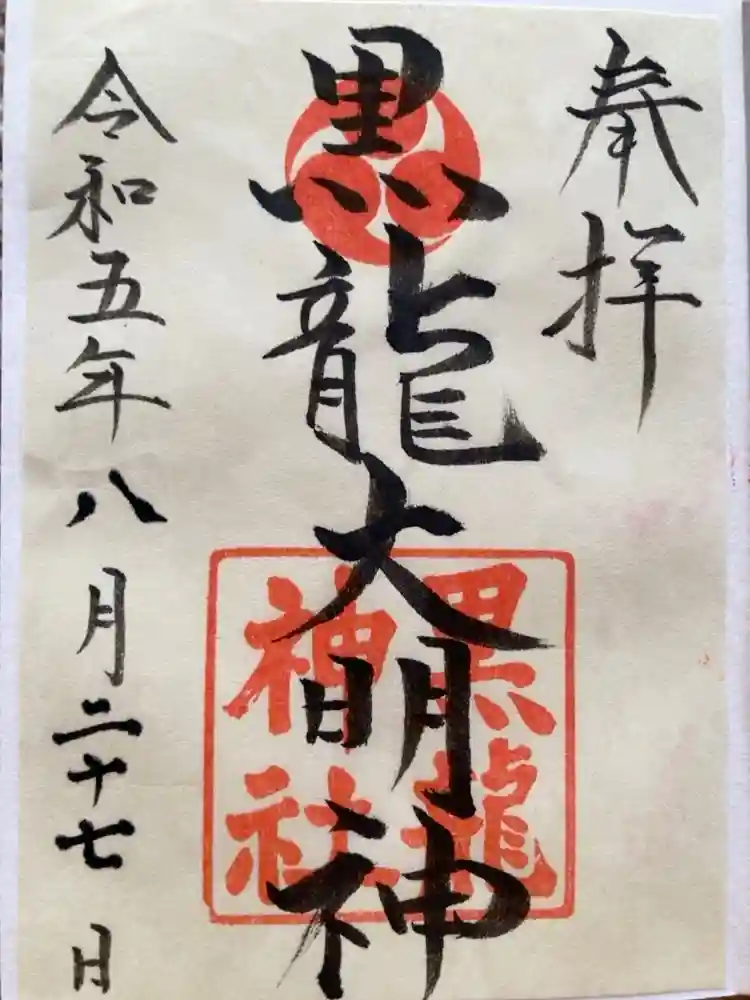 奉拝
黒龍大明神
黒龍
神社
令和五年八月二十七日